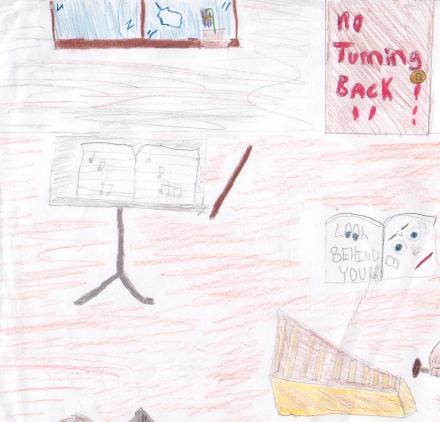 No
Turning
BACK
!! !
LOOK
BEHIND
YOU!!